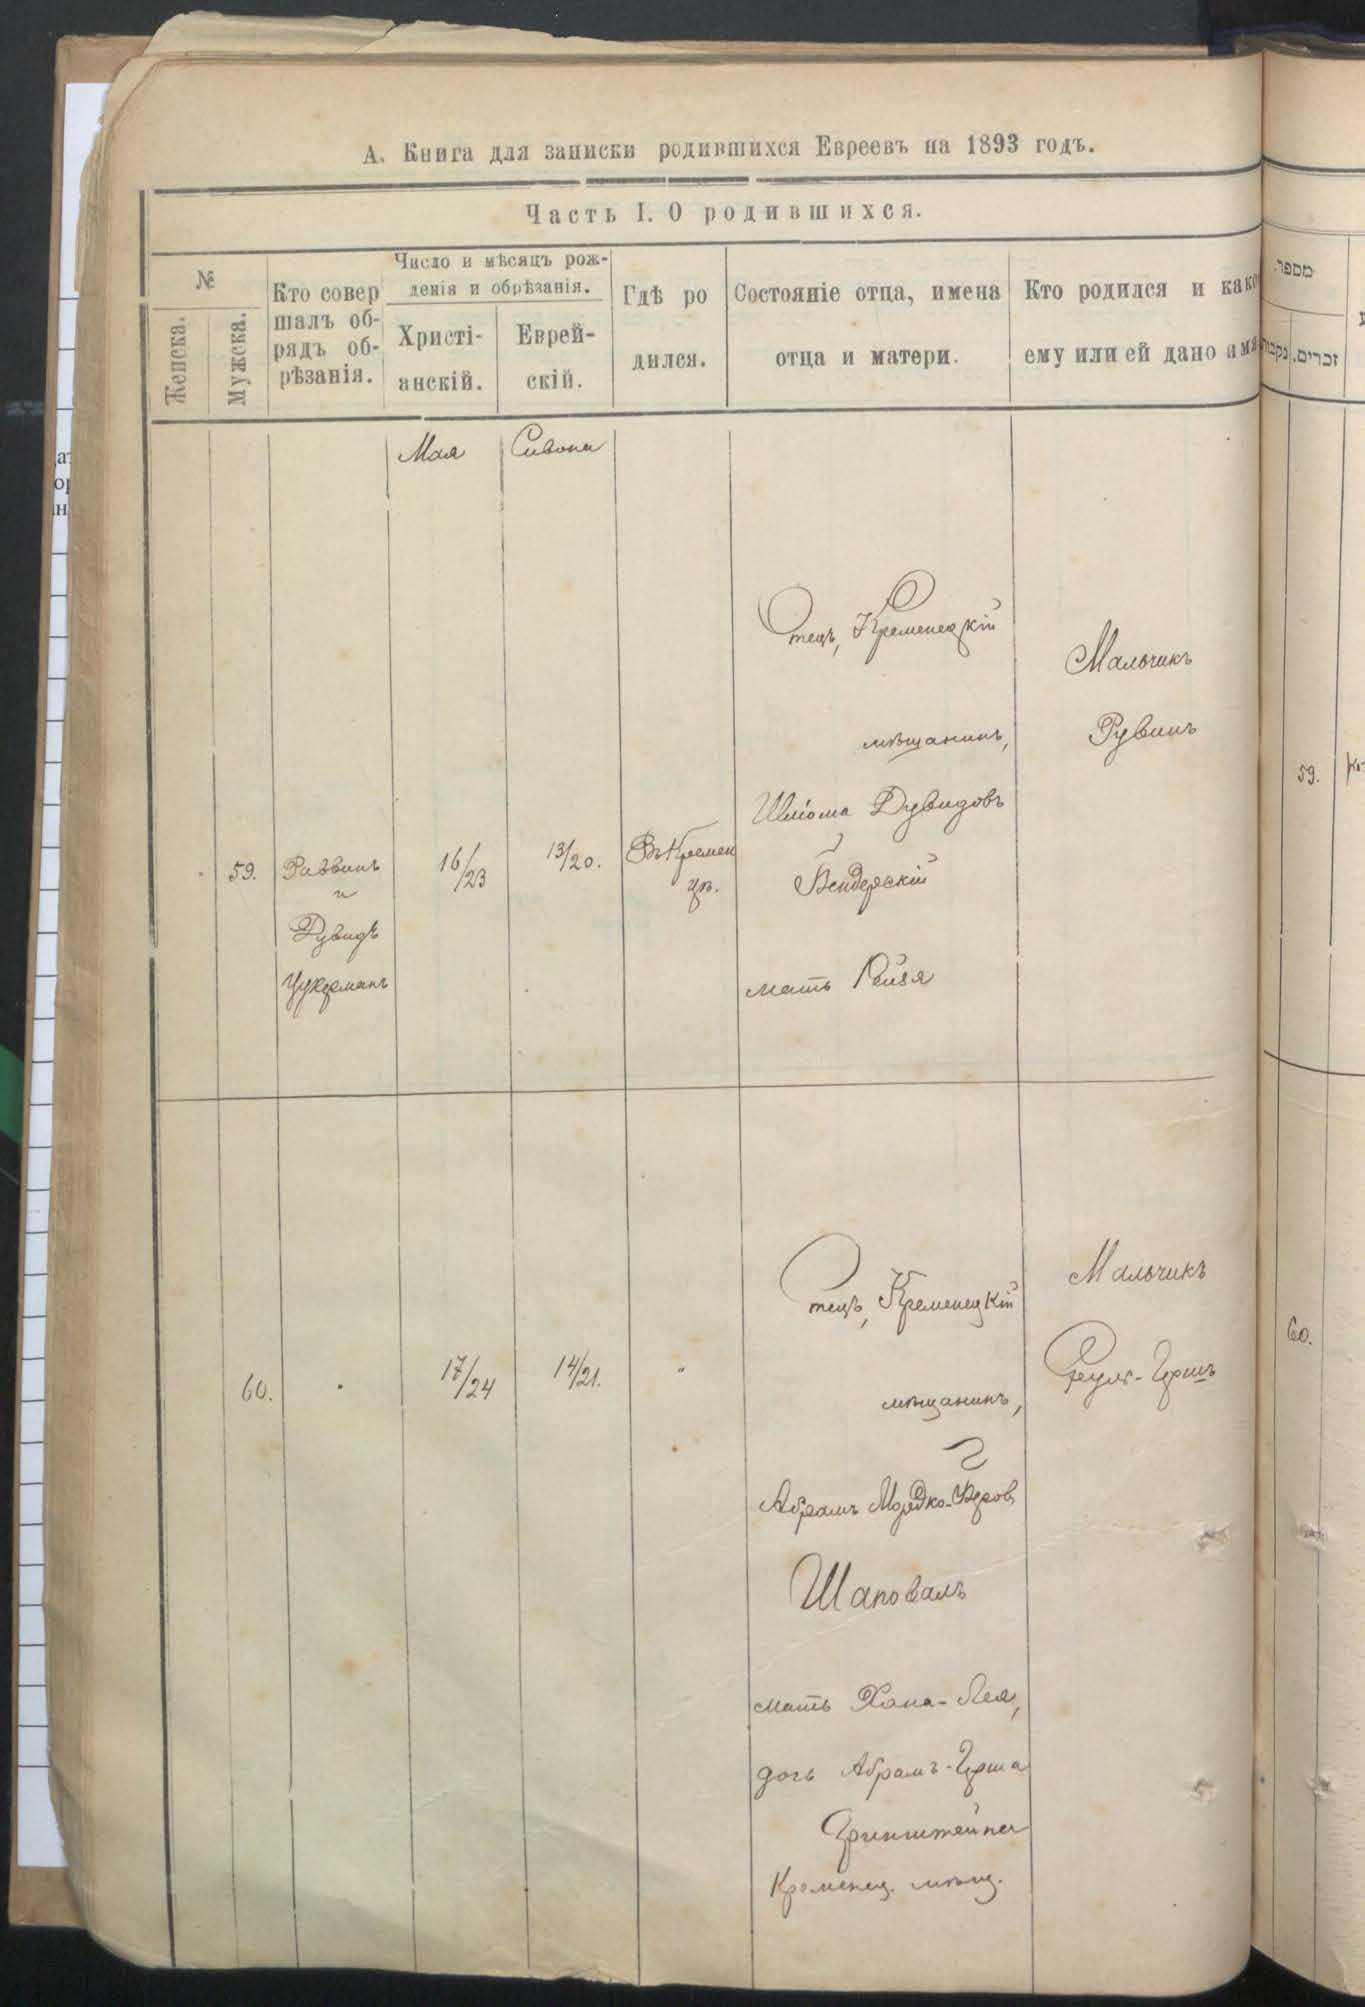 А. Книга для записки родившихся Евреевъ на 1893 годъ.
Часть I. О родившихся.
№
Женска.
Мужска.
Кто совер
шалъ об-
рядъ об-
рѣзанія.
Число и мѣсяцъ рож-
денія и обрѣзанія.
Христі-
анскій.
Еврей-
скій.
Гдѣ ро
дился.
Состояніе отца, имена
отца и матери.
Кто родился и како
ему или ей дано имя
מספר.
זכרים.
נקבות
Мая
Сивона
59.
Раввинъ
и
Дувидъ
Цукерманъ
16/23
13/20.
Въ Кремен
цѣ.
Отецъ, Кременецкій
мѣщанинъ,
Шлома Дувидовъ
Бендерскій
мать Рейзя
Мальчикъ
Рувинъ
59.
60.
"
17/24
14/21.
"
Отецъ, Кременецкій
мѣщанинъ,
Абрамъ Мордко-
Шаповалъ
мать Хана-Лея,
дочь Абрамъ-Герша
Гринштейна
Кременец. мѣщ.
Мальчикъ
60.